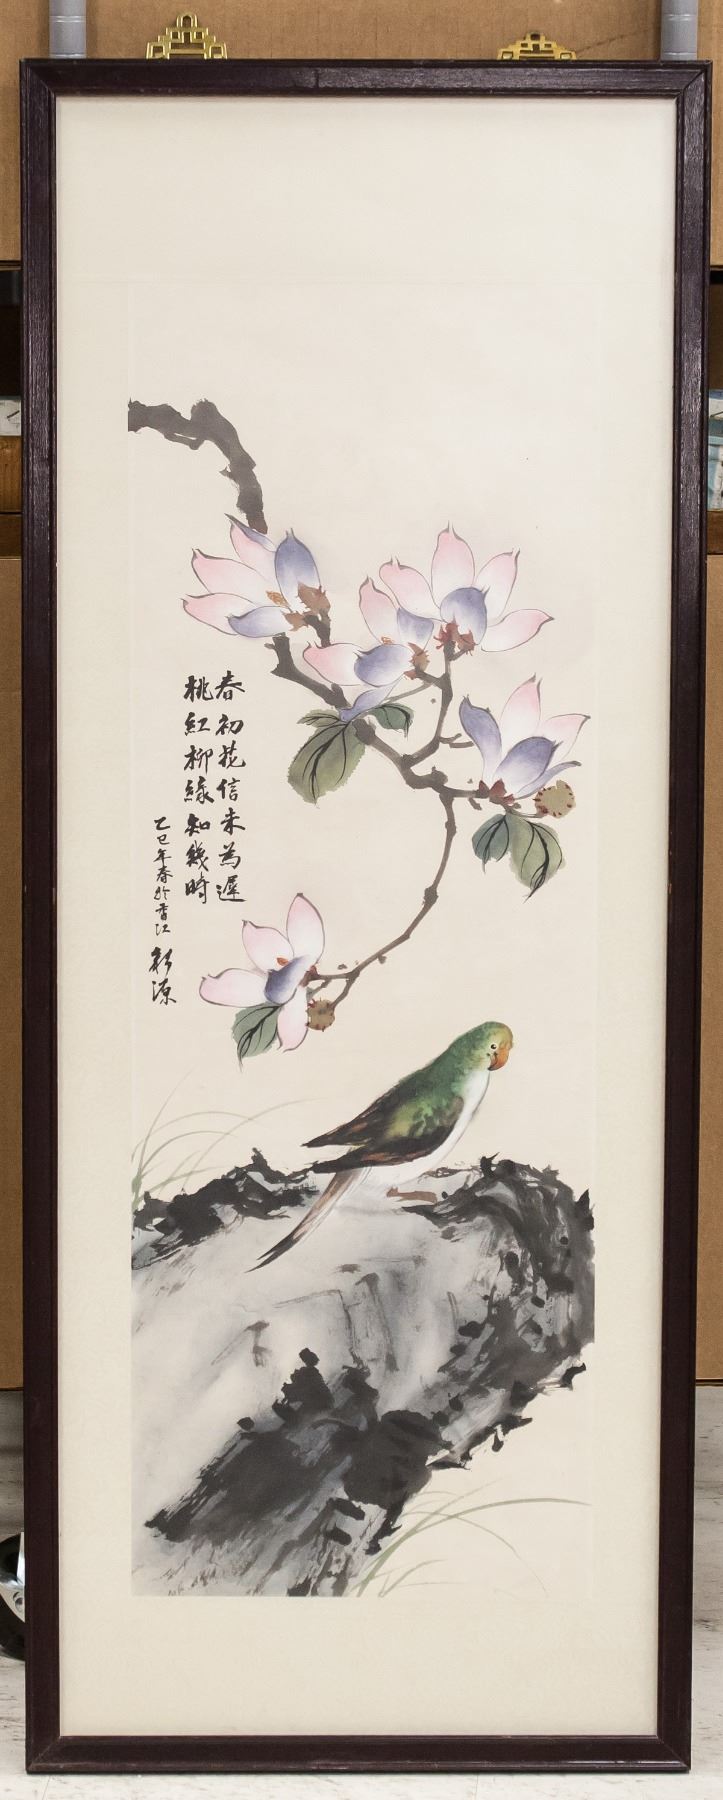 春初花信未為遲
桃紅柳綠知幾時
乙巳年春於香江
彩源